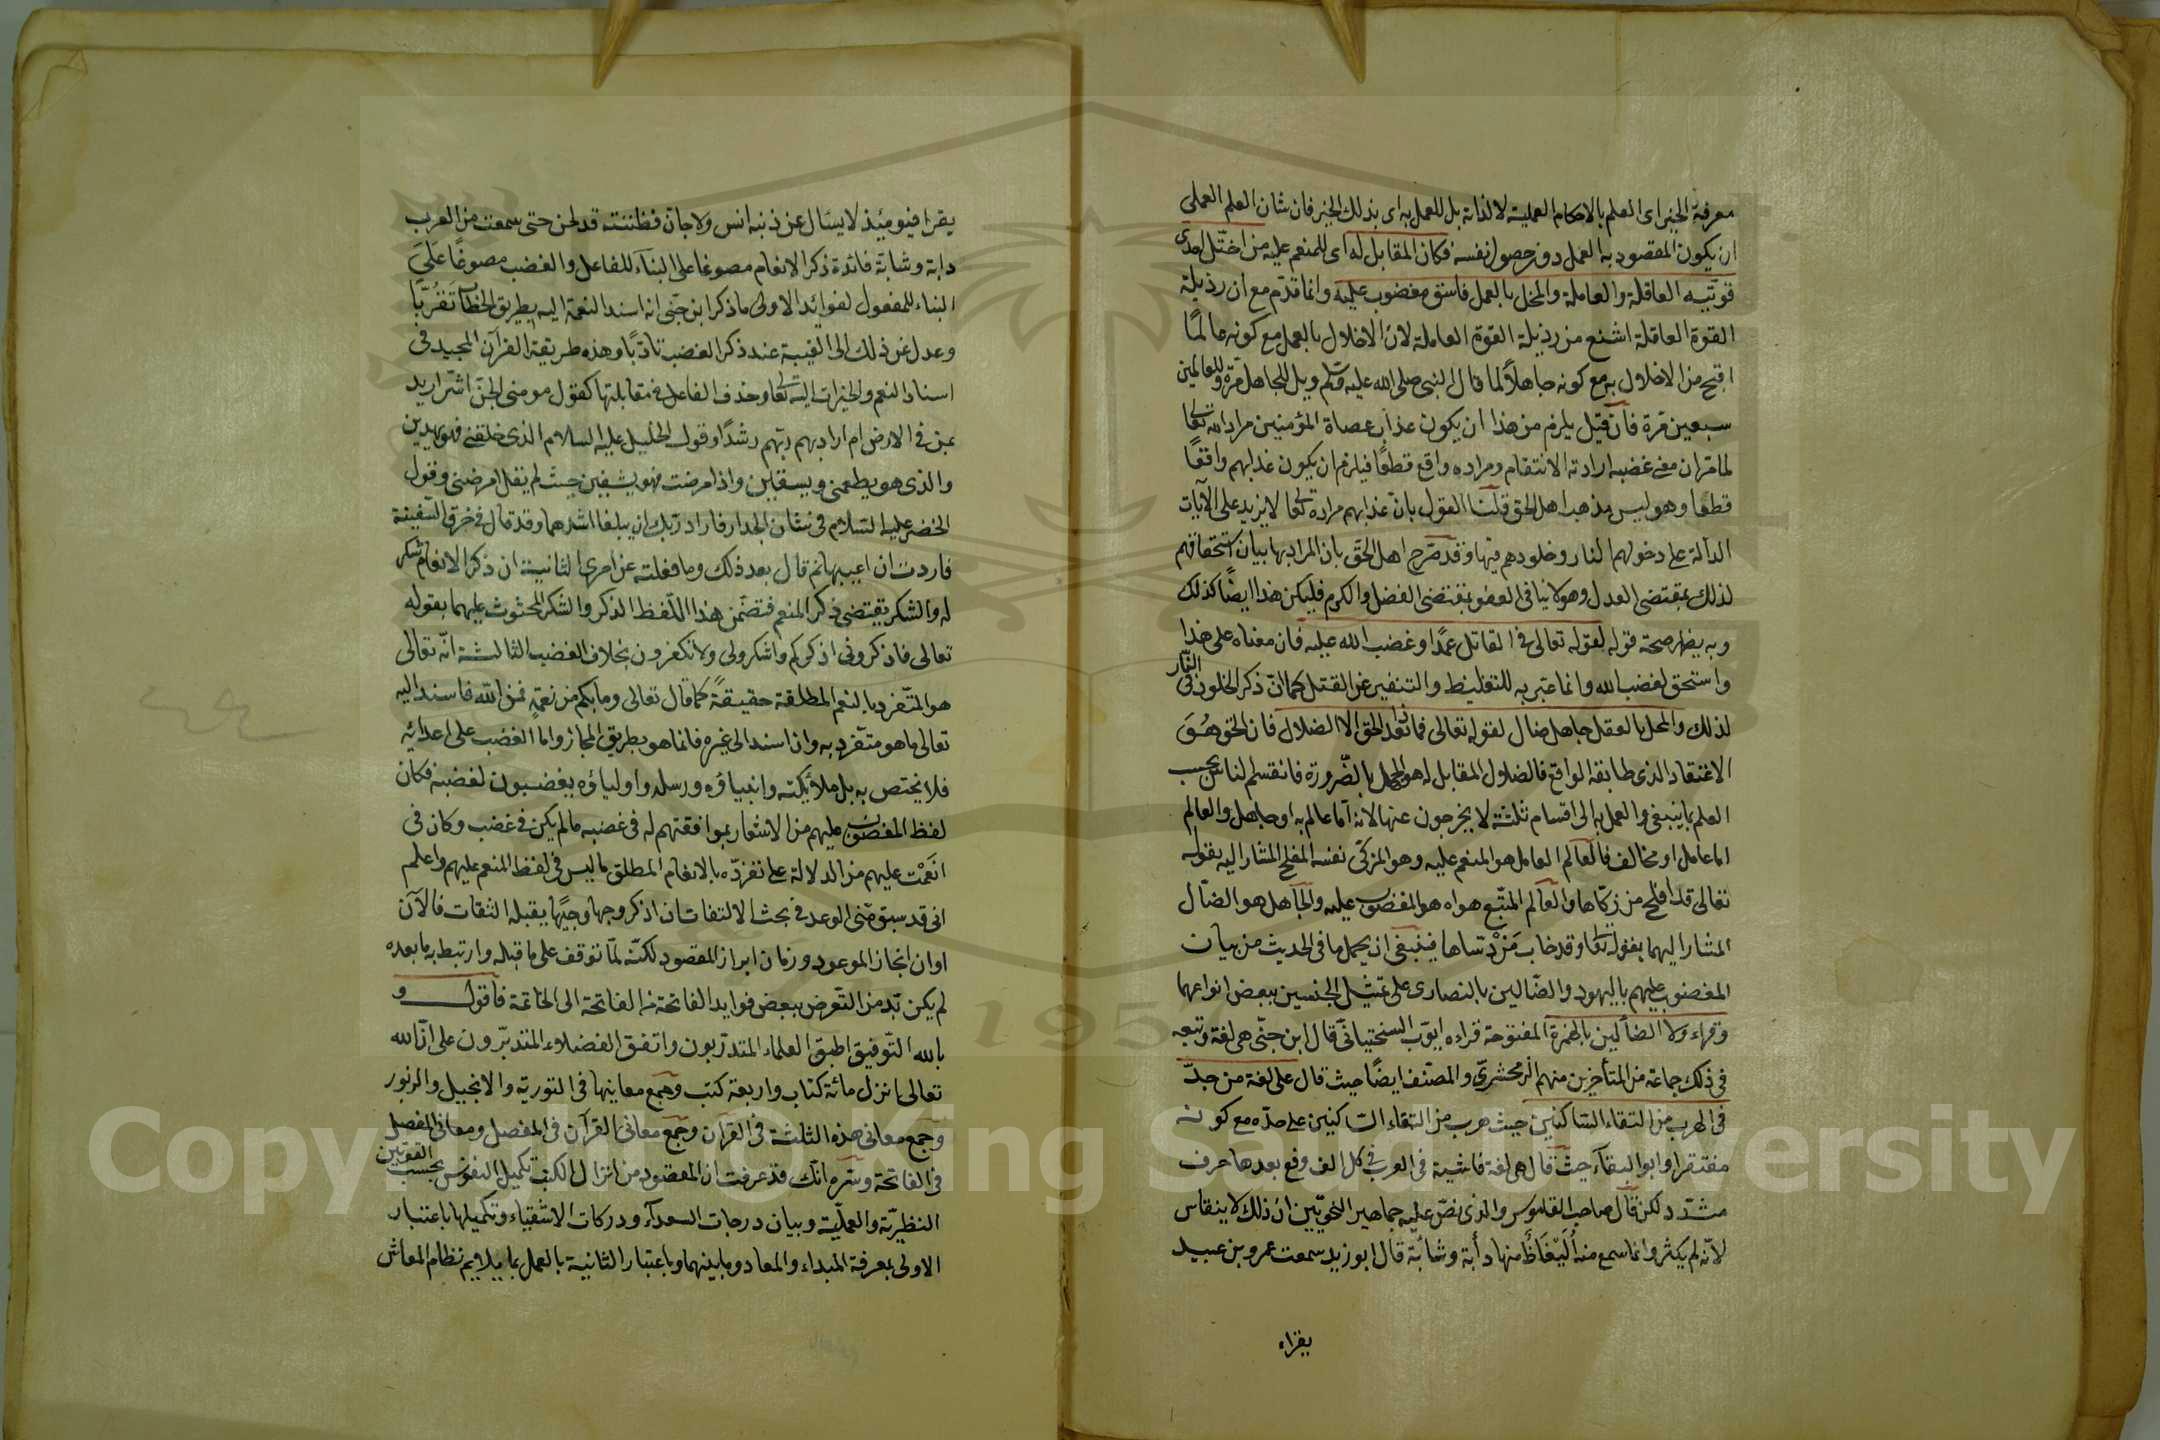 معرفة الخير اى العلم بالاحكام العملية لا لذاته بل للعمل به اى بذلك الخير فان شان العلم العملى
ان يكون المقصود به العمل دون حصول نفسه فكان المقابل له اى للمنعم عليه من اختل احدى
قوتيه العاقلة والعاملة والمخل بالعمل فاسق مغضوب عليه وانما قدم مع ان رذيلة
القوة العاقلة اشنع من رذيلة القوة العاملة لان الاخلال بالعمل مع كونه عالمًا
اقبح من الاخلال به مع كونه جاهلاً لما قال النبى صلى الله عليه وسلم ويل للجاهل مرة وللعالمين
سبعين مرة فان قيل يلزم من هذا ان يكون عذاب عصاة المؤمنين مراد الله تعالى
لما مر ان معنى غضبه ارادته الانتقام ومراده واقع قطعًا فيلزم ان يكون عذابهم واقعًا
قطعًا وهو ليس مذهب اهل الحق قلنا القول بان عذابهم مراده تعالى لا يزيد على الآيات
الدالة على دخولهم النار وخلودهم فيها وقد صرح اهل الحق بان المراد بها بيان استحقاقهم
لذلك بمقتضى العدل وهو لا ينافى العفو بمقتضى الفضل والكرم فليكن هذا ايضًا كذلك
وبه يظهر صحة قوله لقوله تعالى فى القاتل عمدًا وغضب الله عليه فان معناه على هذا
واستحق لغضب الله وانما عبر به للتغليظ والتنفير عن القتل كما ان ذكر الخلود فى النار
لذلك والمخل بالعقل جاهل ضال لقوله تعالى فماذا بعد الحق الا الضلال فان الحق هُوَ
الاعتقاد الذى طابقه الواقع فالضلال المقابل له هو الجهل بالضرورة فانقسم الناس بحسب
العلم بما ينبغى والعمل به الى اقسام ثلثة لا يخرجون عنها لانه اما عالم به او جاهل والعالم
اما عامل او مخالف فالعالم العامل هو المنعم عليه وهو المزكى نفسه المفلح المشار اليه بقوله
تعالى قد افلح من زكاها والعالم المتبع هواه هو المغضوب عليه والجاهل هو الضال
المشار اليهما بقوله تعالى وقد خاب مَنْ دساها فينبغى ان يحمل ما فى الحديث من بيان
المغضوب عليهم باليهود والضالين بالنصارى على تمثيل الجنسين ببعض انواعهما
وقراء ولا الضألين بالهمزة المفتوحة قراءه ايوب السختيانى قال ابن جنى هى لغة وتبعه
فى ذلك جماعة من المتأخرين منهم الزمخشرى والمصنف ايضًا حيث قال على لغة من جد
فى الهرب من التقاء الساكنين حيث هرب من التقاء الساكنين على حده مع كونه
مغتفرا وابو البقاء حيث قال هى لغة فاشية فى العرب فى كل الف وقع بعدها حرف
مشدد لكن قال صاحب القاموس والذى نص عليه جماهير النحويين ان ذلك لا ينقاس
لانه لم يكثر وانما سمع منه اُلَيْفَاظٌ منها دأبة وشأبة قال ابو زيد سمعت عمرو بن عبيد
يقراء
يقرا فيومئذ لا يسأل عن ذنبه انس ولا جان فظننته قد لحن حتى سمعت من العرب
دابة وشابة فائدة ذكر الانعام مصوغا على البناء للفاعل والغضب مصوغًا عَلَى
البناء للمفعول لفوائد الاولى ما ذكر ابن جنى انه اسند النعمة اليه بطريق الخطاب تَقَرُّبًا
وعدل عن ذلك الى الغيبة عند ذكر الغضب تادبًا وهذه طريقة القرآن المجيد فى
اسناد النعم والخيرات اليه تعالى وحذف الفاعل فى مقابلتها كقول مومنى الجن اشر اريد
بمن فى الارض ام اراد بهم ربهم رشدًا وقول الخليل عليه السلام الذى خلقنى فهو يهدين
والذى هو يطعمنى ويسقين واذا مرضت فهو يشفين حيث لم يقل امرضنى وقول
الخضر عليه السلام فى شان الجدار فاراد ربك ان يبلغا اشدهما وقد قال فى خرق السفينة
فاردت ان اعيبها ثم قال بعد ذلك وما فعلته عن امرى الثانية ان ذكر الانعام شكر
له والشكر يقتضى ذكر المنعم فتضمن هذا اللفظ الذكر والشكر المحثوث عليهما بقوله
تعالى فاذكرونى اذكركم واشكرولى ولا تكفرون بخلاف الغضب الثالثة انه تعالى
هو المتفرد بالنعم المطلقة حقيقةً كما قال تعالى وما بكم من نعمةٍ فمن الله فاسند اليه
تعالى ما هو متفرد به وان اسند الى غيره فانما هو بطريق المجاز واما الغضب على اعدائه
فلا يختص به بل ملائكته وانبياؤه ورسله واولياؤه يغضبون لغضبه فكان
لفظ المغضوب عليهم من الاشعار بموافقتهم له فى غضبه ما لم يكن فى غضب وكان فى
انَعَمْت عليهم من الدلالة على تفرده بالانعام المطلق ما ليس فى لفظ المنعم عليهم واعلم
انى قد سبق منى الوعد فى بحث الالتفات ان اذكر وجها وجيهًا يقبله الثقات فالآن
اوان انجاز الموعود وزمان ابراز المقصود لكنه لما توقف على ما قبله وارتبط به ما بعده
لم يكن بد من التعرض ببعض فوايد الفاتحة من الفاتحة الى الخاتمة فاقول و
بالله التوفيق اطبق العلماء المتدربون واتفق الفضلاء المتدبرون على ان الله
تعالى انزل مائة كتاب واربعة كتب وجمع معانيها فى التورية والانجيل والزبور
وجمع معانى هذه الثلثة فى القرآن وجمع معانى القرآن فى المفصل ومعانى المفصل
فى الفاتحة وسره انك قد عرفت ان المقصود من انزال الكتب تكميل النفوس بحسب القوتين
النظرية والعملية وبيان درجات السعدآء ودركات الاشقياء وتكميلها باعتبار
الاولى بمعرفة المبداء والمعاد وما بينهما وباعتبار الثانية بالعمل بما يلايم نظام المعاش
Copyright © King Saud University
1957